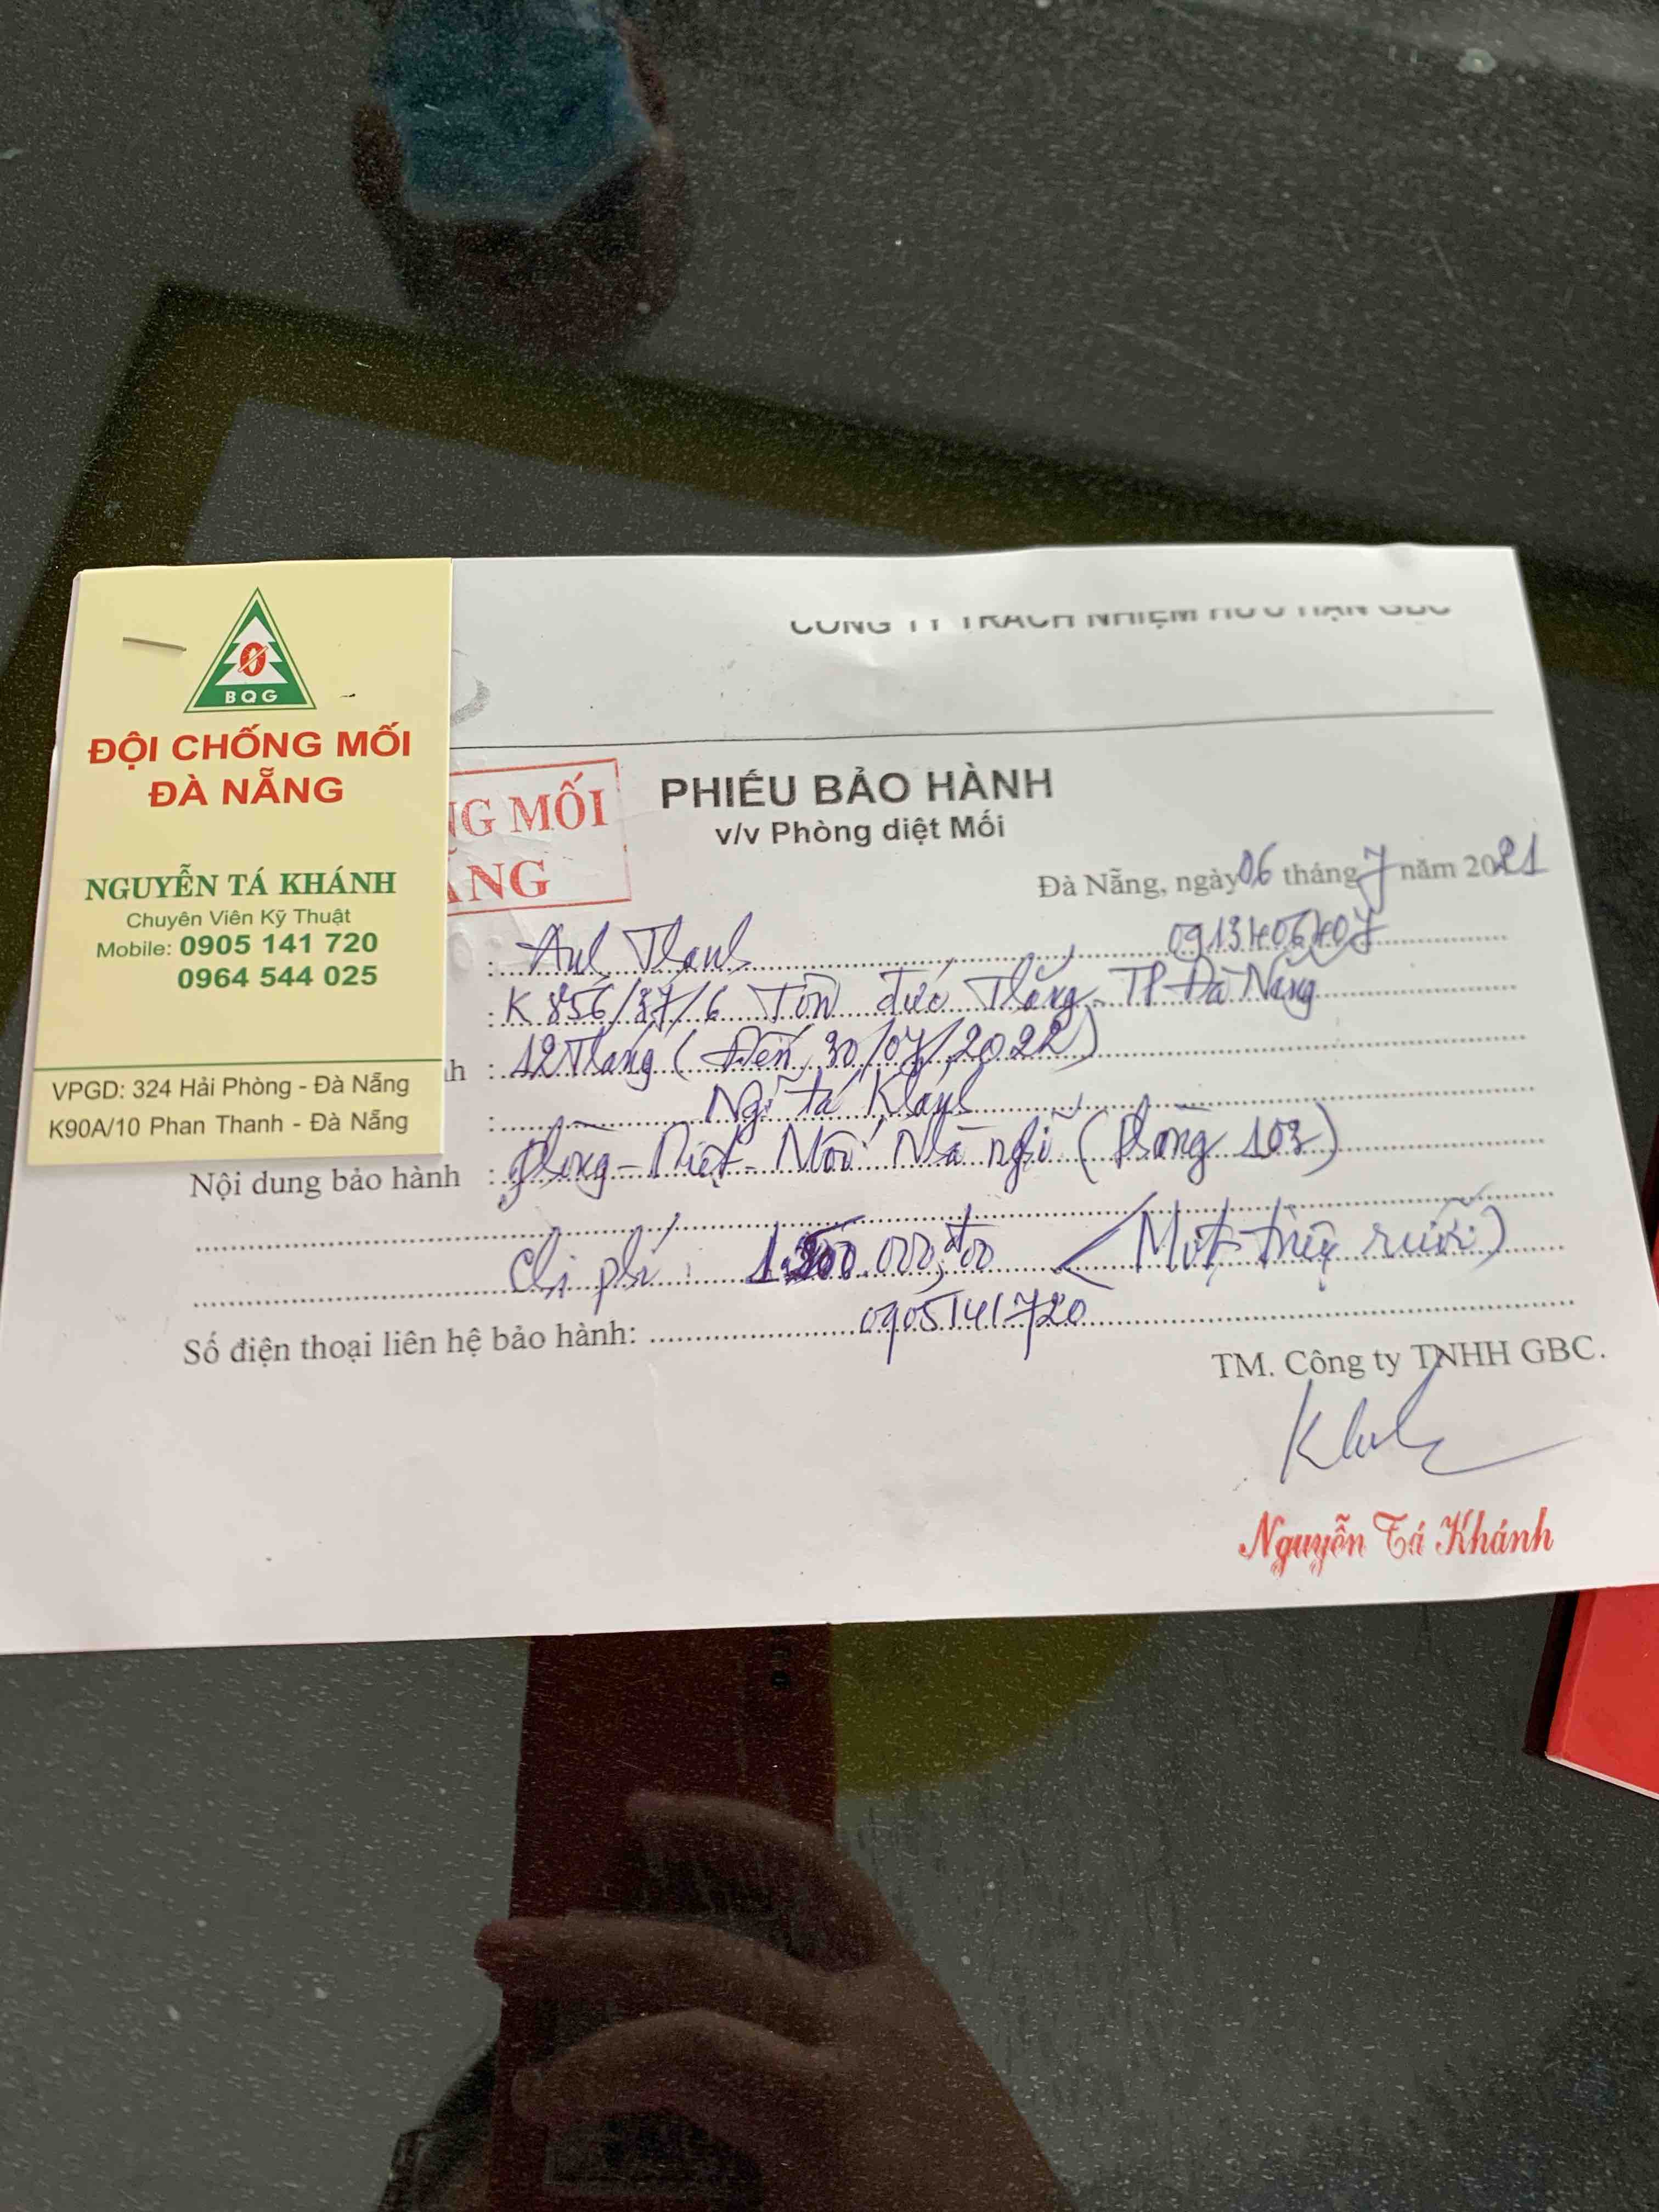 CÔNG TY TRÁCH NHIỆM HỮU HẠN GBC
BQG
ĐỘI CHỐNG MỐI
ĐÀ NẴNG
NGUYỄN TÁ KHÁNH
Chuyên Viên Kỹ Thuật
Mobile: 0905 141 720
0964 544 025
VPGD: 324 Hải Phòng - Đà Nẵng
K90A/10 Phan Thanh - Đà Nẵng
NG MỐI
ẴNG
PHIẾU BẢO HÀNH
v/v Phòng diệt Mối
Đà Nẵng, ngày 06 tháng 7 năm 2021
: Anh Thanh 0913406407
: K856/37/6 Tôn đức Thắng - TP Đà Nẵng
h : 12 Tháng (Đến 30/07/2022)
: Ng~ tá Khánh
Nội dung bảo hành : phòng - Diệt - Mối Nhà nghĩ (Phòng 103)
Chi phí : 1.500.000,đ00 (Một triệu rưỡi)
Số điện thoại liên hệ bảo hành: 0905141720
TM. Công ty TNHH GBC.
Nguyễn Tá Khánh